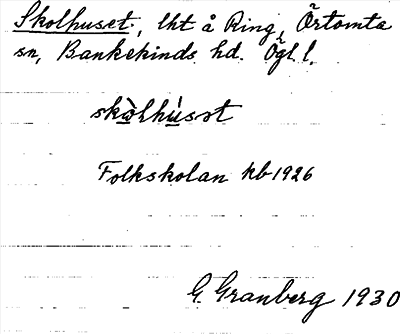 Skolhuset, lht å Ring, Örtomta
sn, Bankekinds hd. Ögl. l.
skò̀lhúsət
Folkskolan kb 1926
G. Granberg 1930